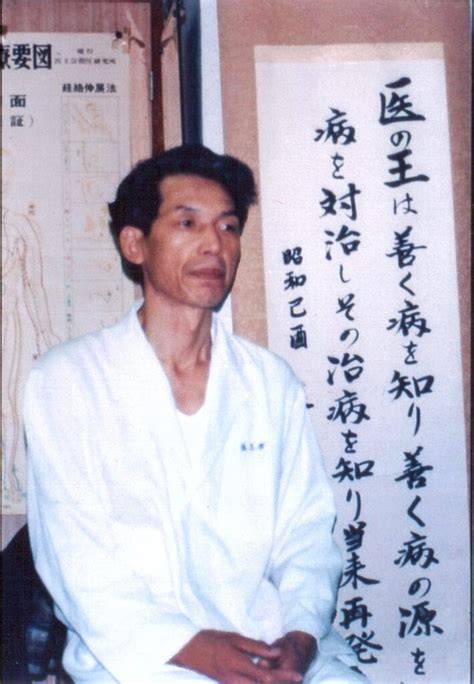 医の王は善く病を知り善く病の源を
病を対治しその治病を知り当来再発
昭和己酉
療要図
医王会指圧研究所
経絡伸展法
面
証）